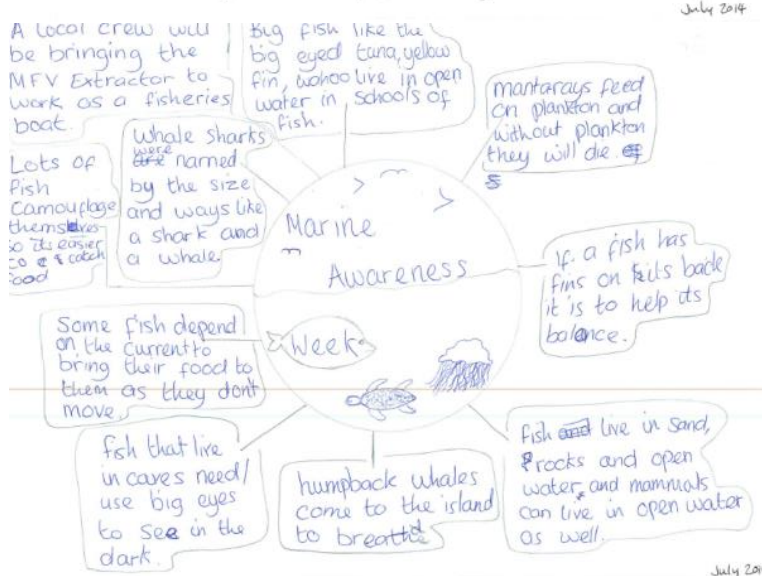 July 2014
A local crew will
be bringing the
MFV Extractor to
work as a fisheries
boat.
Big fish like the
big eyed tuna, yellow
fin, wohoo live in open
water in schools of
fish.
mantarays feed
on plankton and
without plankton
they will die.
whale sharks
were named
by the size
and ways like
a shark and
a whale.
Lots of
fish
camouflage
themselves
so its easier
to catch
food
Marine
Awareness
Week
if a fish has
fins on its back
it is to help its
balance.
Some fish depend
on the current to
bring their food to
them as they don't
move.
fish that live
in caves need/
use big eyes
to see in the
dark.
humpback whales
come to the island
to
fish live in sand,
rocks and open
water, and mammals
can live in open water
as well.
July 201